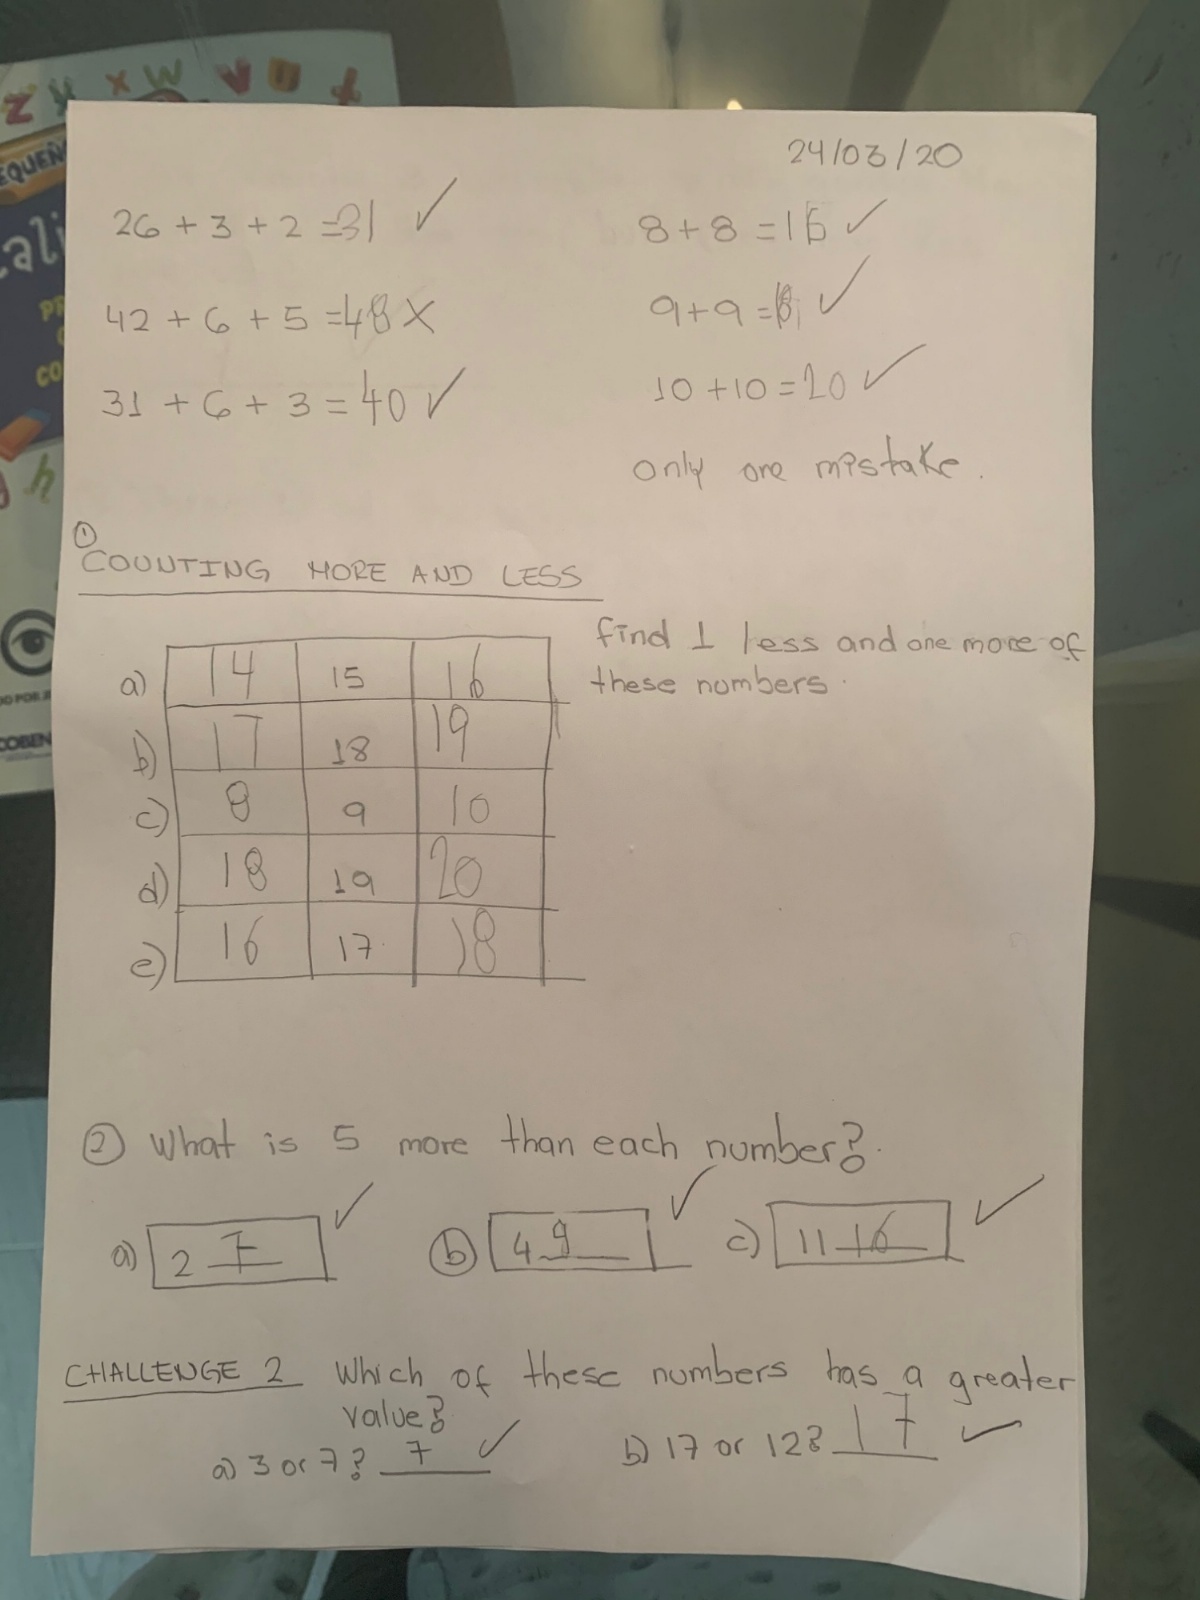 Z X W V U
EQUEÑ
24/03/20
26 + 3 + 2 = 31 ✓
8 + 8 = 16 ✓
42 + 6 + 5 = 48 X
9 + 9 = 18 ✓
31 + 6 + 3 = 40 ✓
10 + 10 = 20 ✓
only one mistake.
① COUNTING MORE AND LESS
find 1 less and one more of
these numbers.
a) 14 15 16
b) 17 18 19
c) 8 9 10
d) 18 19 20
e) 16 17 18
② What is 5 more than each number?
a) 2 7 ✓ b) 4 9 ✓ c) 11 16 ✓
CHALLENGE 2 Which of these numbers has a greater
value?
a) 3 or 7? 7 ✓ b) 17 or 12? 17 ✓